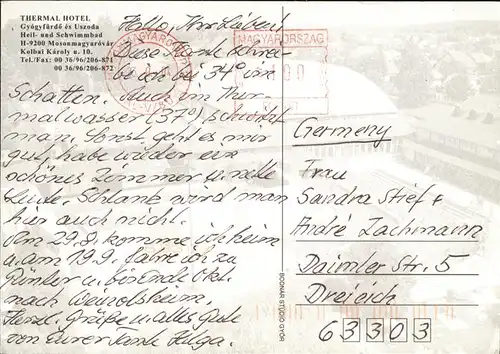 THERMAL HOTEL
Gyógyfürdő és Uszoda
Heil- und Schwimmbad
H-9200 Mosonmagyaróvár
Kolbai Károly u. 10.
Tel./Fax: 00 36/96/206-871
00 36/96/206-872
MAGYARORSZÁG
Hallo, Ihr Lieben!
Diese Karte schrei-
be ich bei 34° im
Schatten. Auch im Ther-
malwasser (37°) schwitzt
man. Sonst geht es mir
gut, habe wieder ein
schönes Zimmer u. nette
Leute. Schlank wird man
hier auch nicht.
Am 29.8. komme ich heim
u. am 19.9. fahre ich zu
Günter u. bis Ende Okt.
nach Weinolsheim.
Herzl. Grüße u. alles Gute
von Eurer Tante Helga.
Germeny
Frau
Sandra Stief +
André Lachmann
Daimler Str. 5
Dreieich
63303
BODNÁR STUDIO GYŐR